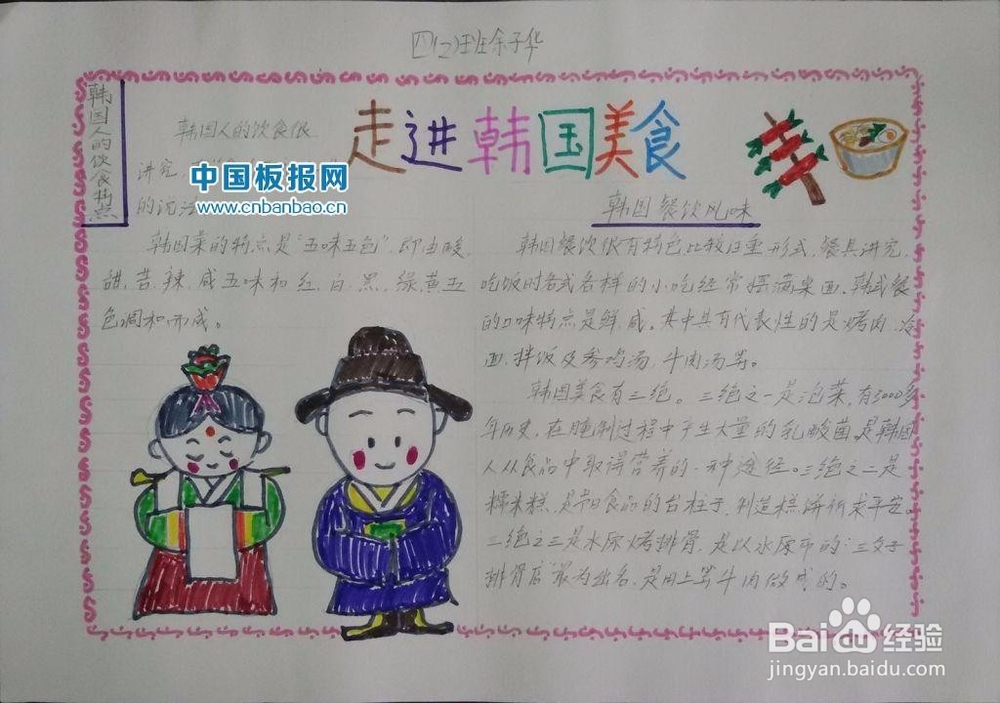 四(2)班余子华
韩国人的饮食特点
走进韩国美食
韩国人的饮食很
讲究
的说法
中国板报网
www.cnbanbao.cn
韩国菜的特点是“五味五色”,即由酸、
甜、苦、辣、咸五味和红、白、黑、绿、黄五
色调和而成。
韩国餐饮风味
韩国餐饮很有特色,比较注重形式,餐具讲究,
吃饭时各式各样的小吃经常摆满桌面。韩式餐
的口味特点是鲜咸。其中具有代表性的是烤肉、冷
面、拌饭及参鸡汤、牛肉汤等。
韩国美食有三绝。三绝之一是泡菜,有3000多
年历史,在腌制过程中产生大量的乳酸菌。是韩国
人从食品中取得营养的一种途径。三绝之二是
糯米糕,是节日食品的台柱子,制造糕饼祈求平安。
三绝之三是水原烤排骨,是以水原市的“三父子
排骨店”最为出名,是用上等牛肉做成的。
Baidu经验
jingyan.baidu.com